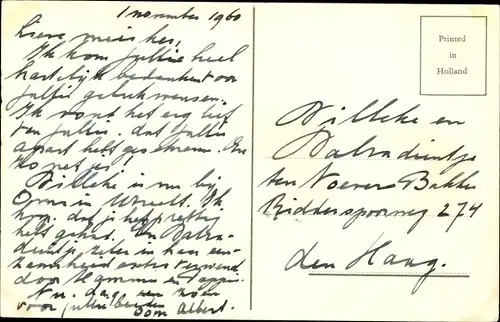 1 november 1960
Lieve meisjes,
Ik kom jullie heel
hartelijk bedanken voor
jullie gelukwensen.
Ik vond het erg lief
van jullie, dat jullie
apart hebt geschreven. En
zo netjes!
Willeke is nu bij
Oma in Utrecht. Ik
hoop, dat je het prettig
hebt gehad. En
in haar een-
zaamheid extra verwend
door Mammie en Pappie.
Nu, dag, een zoen
voor jullie beiden
Oom Albert.
Printed
in
Holland
Willeke en
ten Noever Bakker
Ridderspoorweg 274
den Haag.